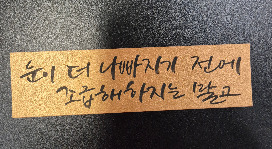 눈이 더 나빠지기 전에
조급해하지는 말고